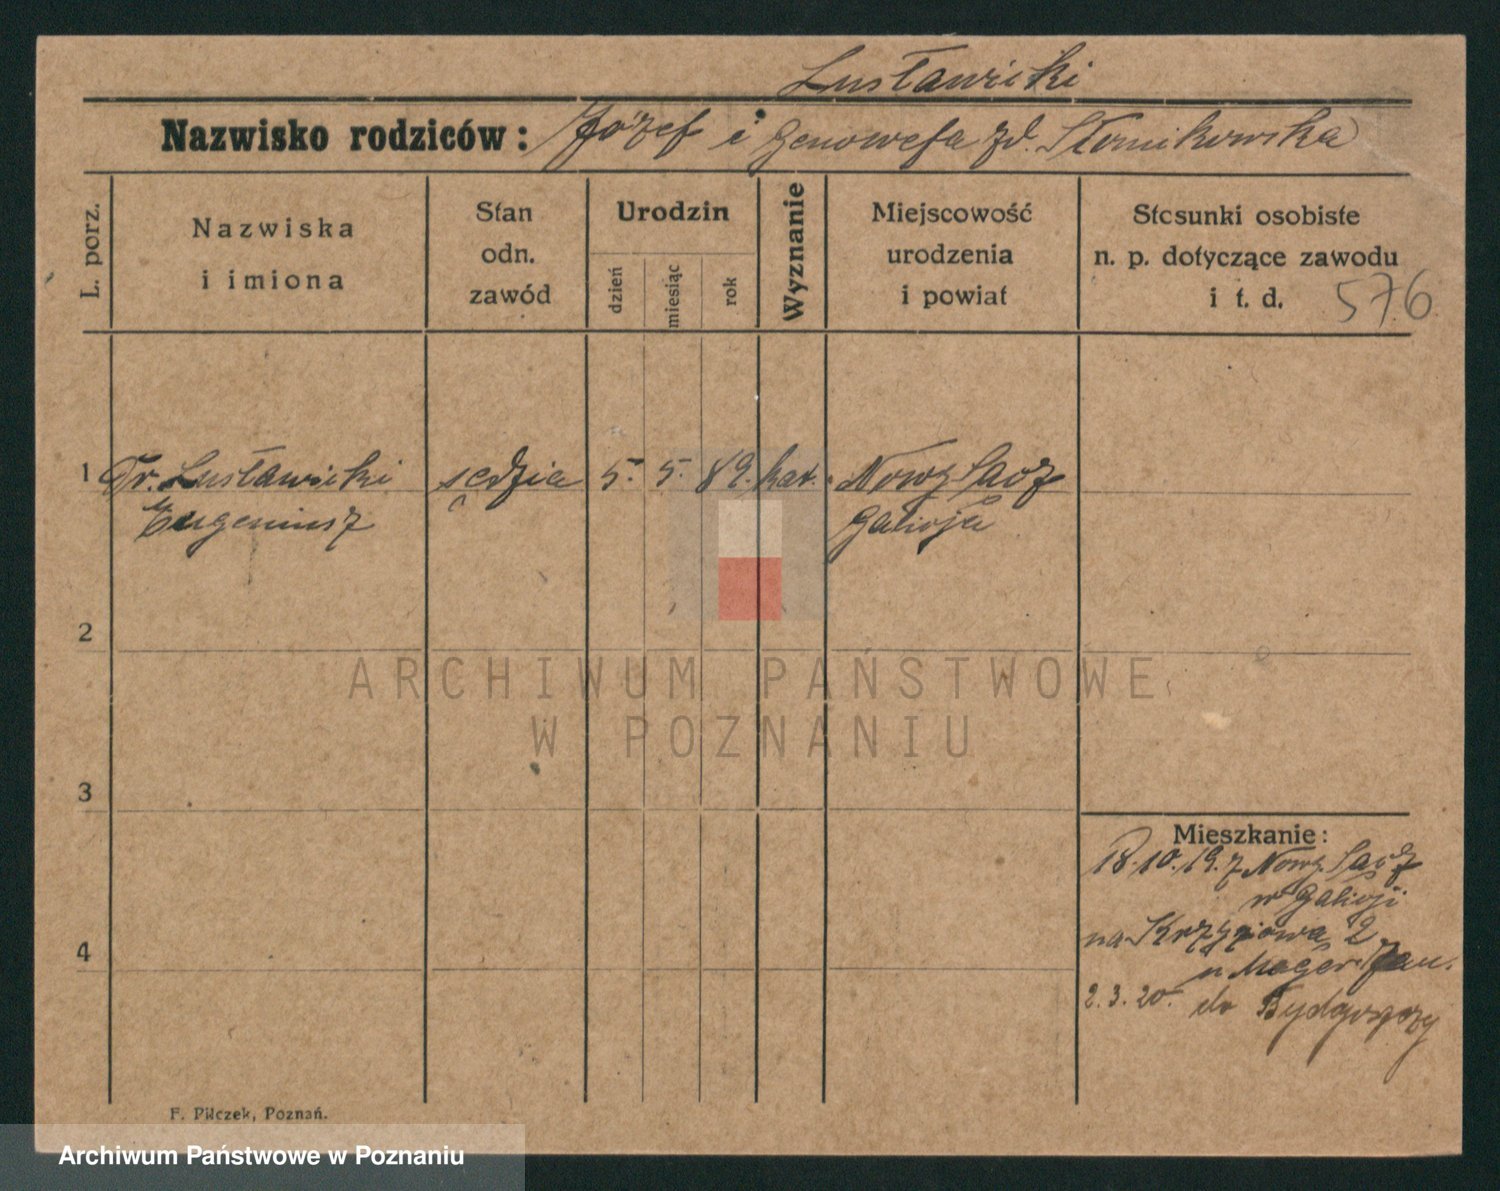 Lusławicki
Nazwisko rodziców: Józef i Genowefa zd. Słomikowska
L. porz.
Nazwiska
i imiona
Stan
odn.
zawód
Urodzin
dzień
miesiąc
rok
Wyznanie
Miejscowość
urodzenia
i powiat
Stosunki osobiste
n. p. dotyczące zawodu
i t. d.
576
1 Dr. Lusławicki sędzia 5. 5. 89. kat. Nowy Sącz
Eugeniusz Galicja
2
ARCHIWUM PAŃSTWOWE
W POZNANIU
3
Mieszkanie:
18.10.19. z Nowy Sącz
w Galicji
4
na Krzyżowa 2
u Mager Jan.
2.3.20. do Bydgoszczy
F. Pilczek, Poznań.
Archiwum Państwowe w Poznaniu